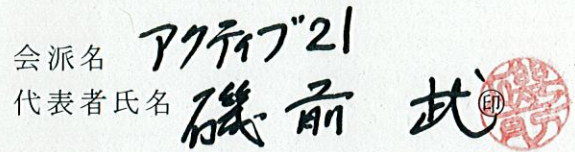 会派名 アクティブ21
代表者氏名 磯前 武 ㊞